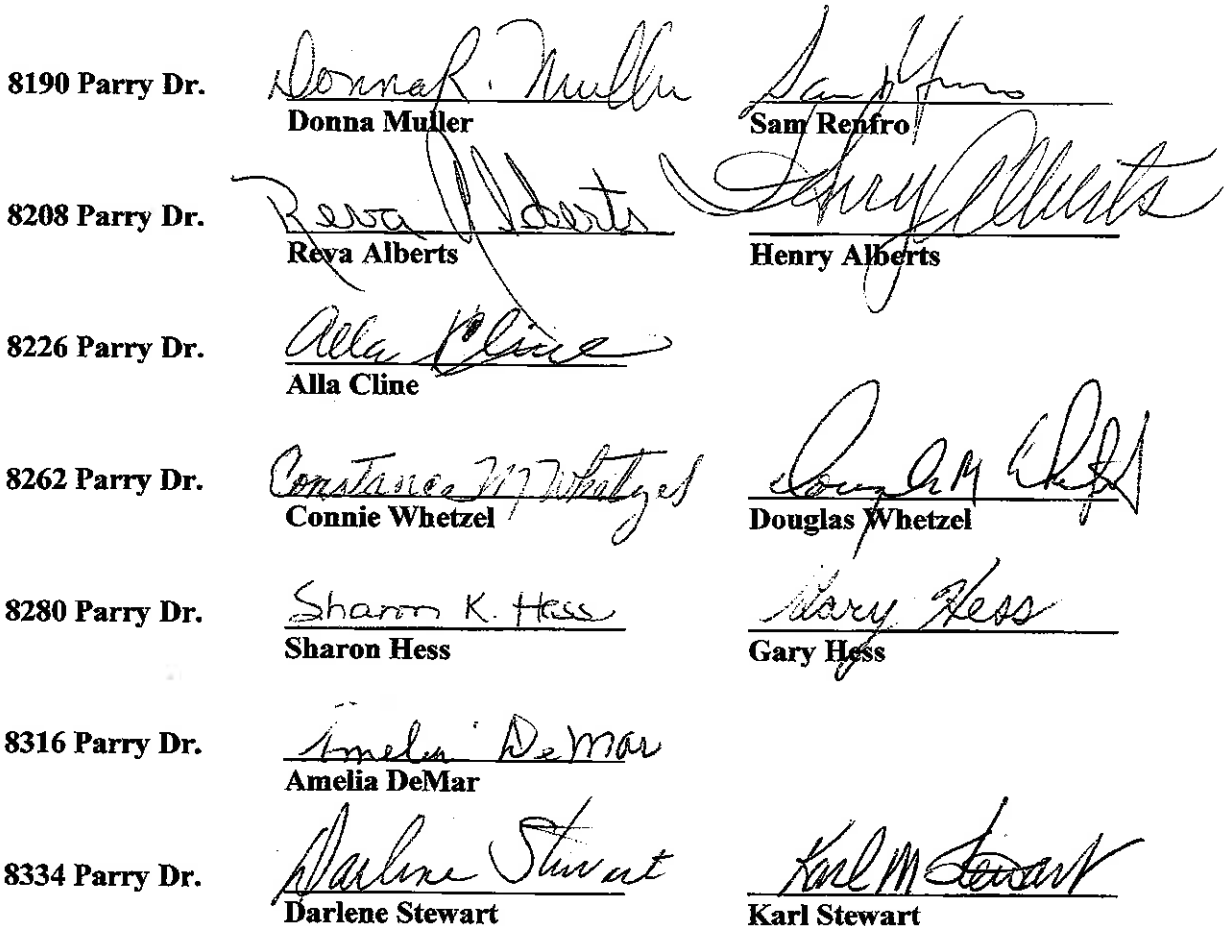 8190 Parry Dr. Donna R. Muller Sam Renfro
Donna Muller Sam Renfro
8208 Parry Dr. Reva Alberts Henry Alberts
Reva Alberts Henry Alberts
8226 Parry Dr. Alla Cline
Alla Cline
8262 Parry Dr. Constance M Whetzel Douglas M Whetzel
Connie Whetzel Douglas Whetzel
8280 Parry Dr. Sharon K. Hess Gary Hess
Sharon Hess Gary Hess
8316 Parry Dr. Amelia DeMar
Amelia DeMar
8334 Parry Dr. Darlene Stewart Karl M Stewart
Darlene Stewart Karl Stewart